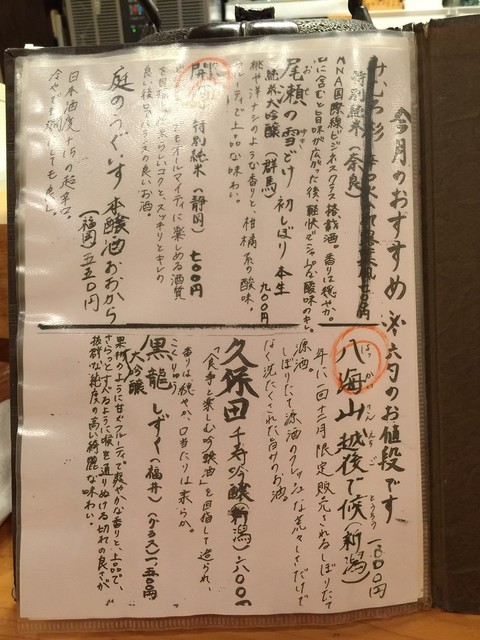 今月のおすすめ ※六勺のお値段です
みむろ杉
特別純米(奈良)
ANA国際線ビジネスクラス搭載酒。香りは穏やか。
口に含むと旨味が広がった後、軽快でシャープな酸味のキレ。
尾瀬の雪どけ 初しぼり 本生
おぜ ゆき
純米大吟醸(群馬) 九〇〇円
桃や洋ナシのような香りと、柑橘系の酸味。
フルーティで上品な味わい。
開 特別純米(静岡) 七〇〇円
オールマイティに楽しめる酒質
を目指し、柔らしいコクと、スッキリとキレの
良い後口。バランスの良いお酒。
庭のうぐいす 本醸造おおから
(福岡)五五〇円
日本酒度+15の超辛口。
冷やでも燗にしても良し。
八海山 越後で候(新潟) 一、〇〇〇円
はっかいさん えちご とうろう
年に一回十二月限定販売されるしぼりたて
源酒。
しぼりたて源酒のフレッシュな荒々しさだけで
なく洗たくされた旨みのお酒。
久保田 千寿吟醸(新潟)六〇〇円
「食事と楽しむ吟醸酒」を目指して造られ、
香りは穏やか、口当たりは柔らか。
黒龍 しずく(福井)(グラス)一、五〇〇円
こくりゅう
大吟醸
果物のように甘くフルーティで爽やかな香りと、上品で、
さらっとすべるように喉を通りぬける切れの良さが
抜群な純度の高い綺麗な味わい。